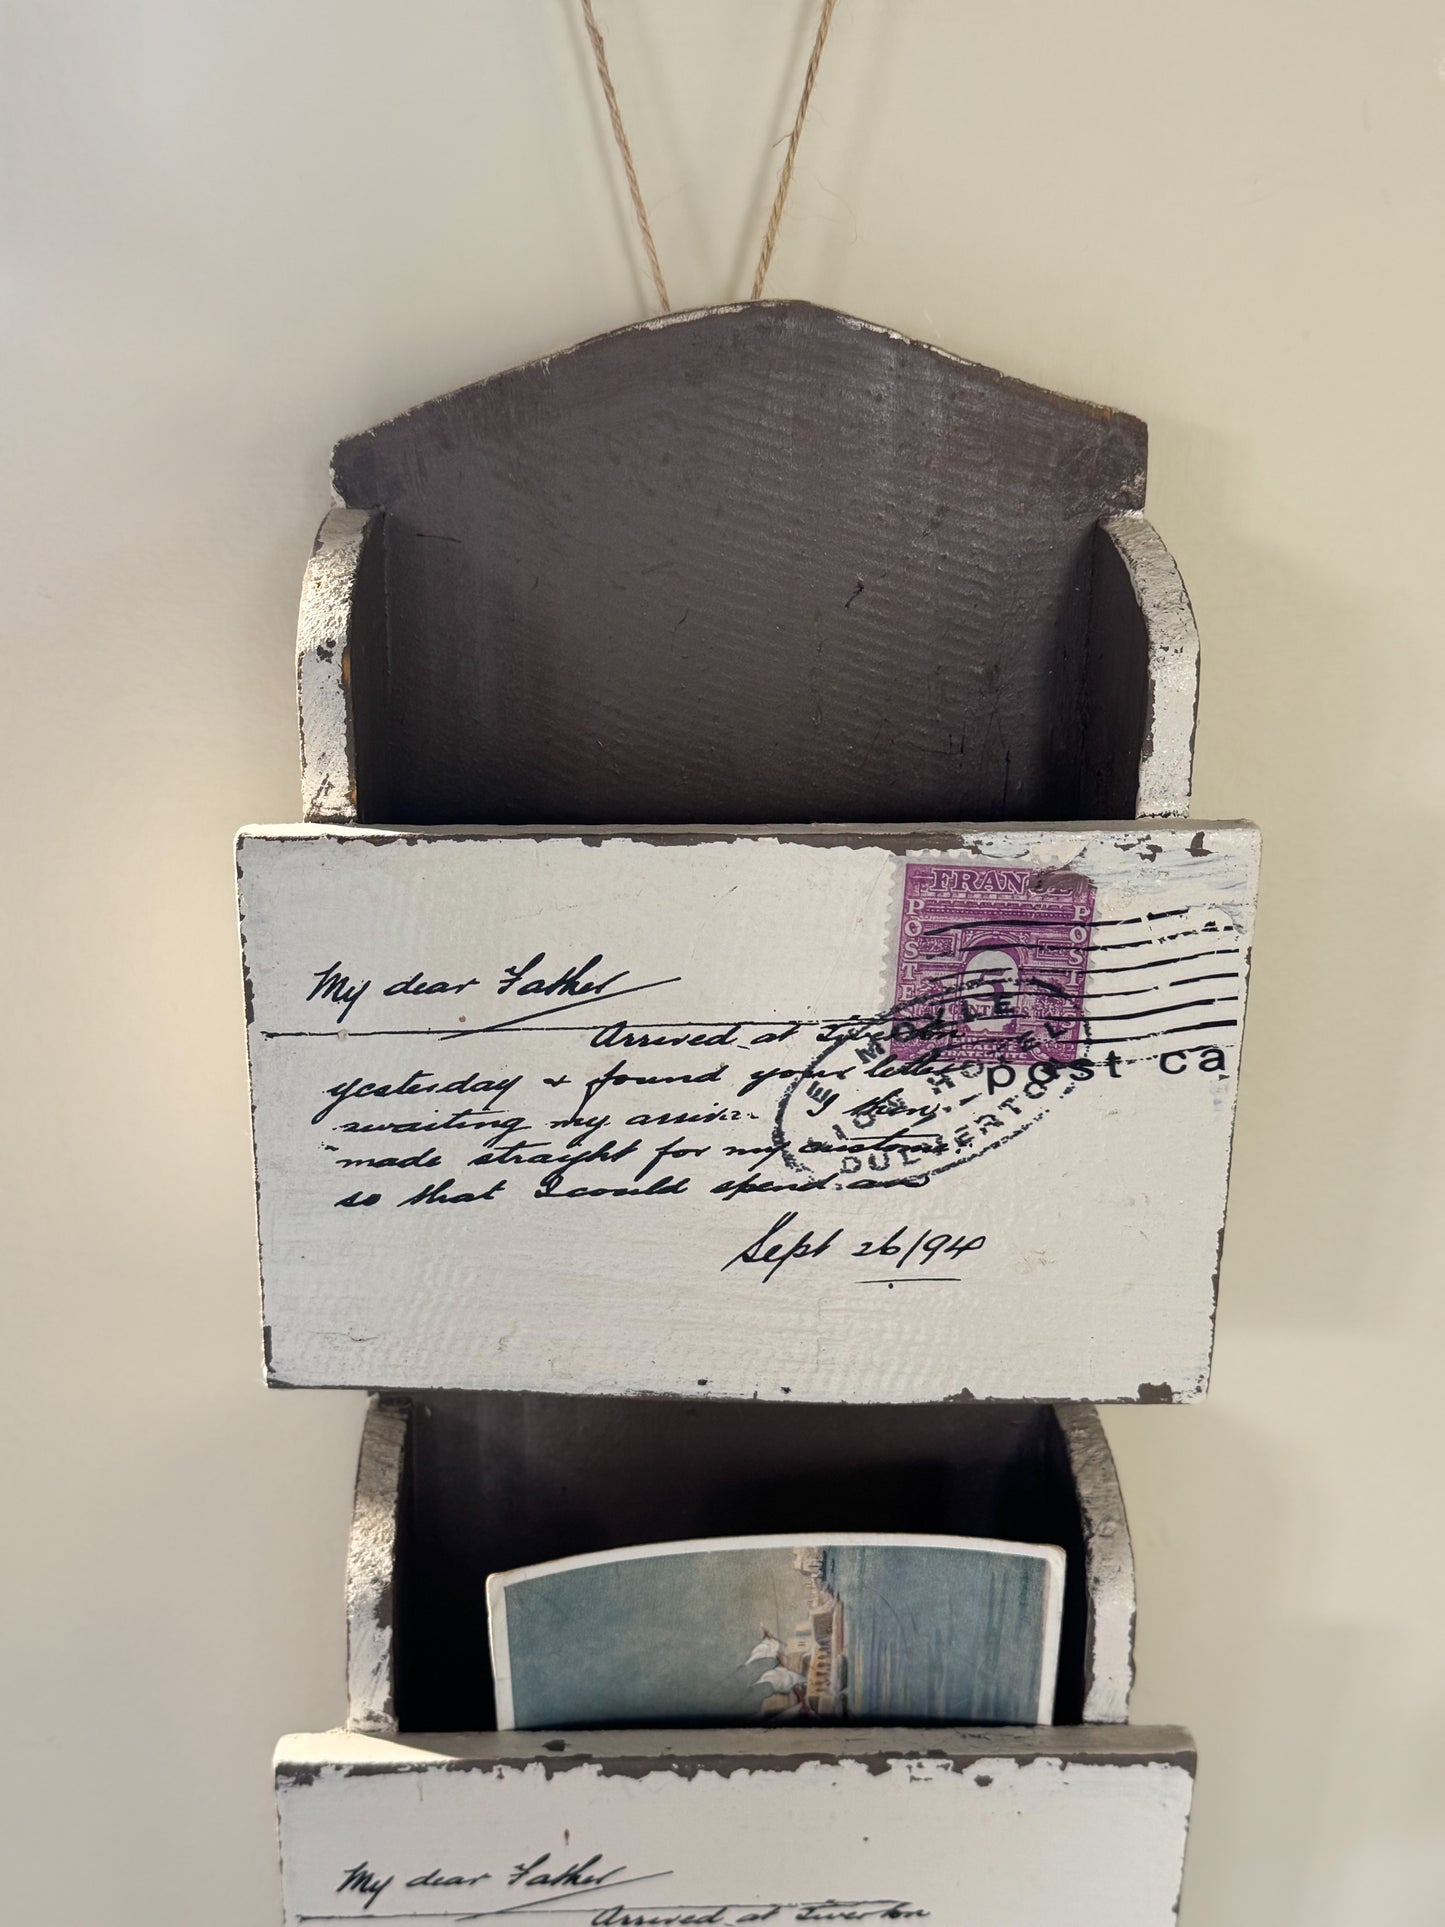 FRANCE
POSTE
POSTE
My dear Father
Arrived at Tiverton
yesterday & found your letter
post ca
awaiting my arrival. I then
made straight for my customer
so that I could spend an
E MOYLE
LION HOTEL
DULVERTON
Sept 26/94
My dear Father
Arrived at Tiverton